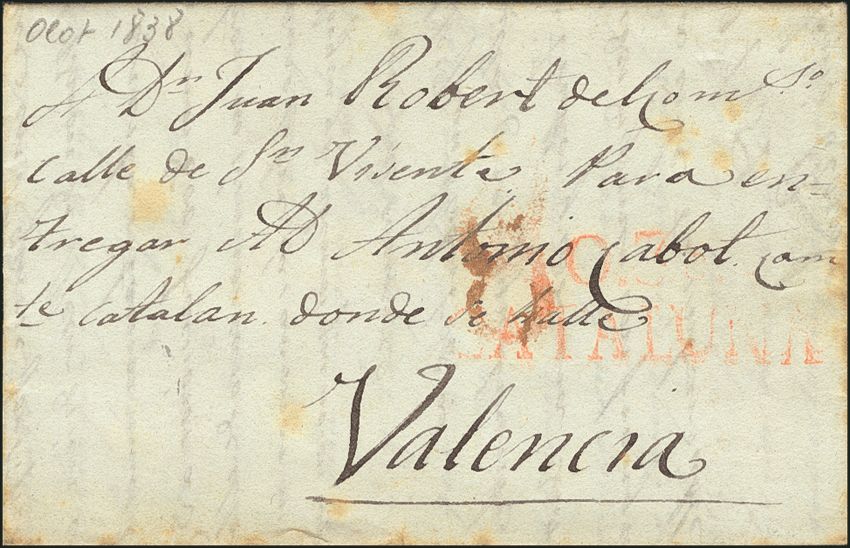 Olot 1838
A Dn Juan Robert del Comso
calle de Sn Visenta Para en=
tregar A D Antonio Cabot. Com
te catalan. donde se halle
CATALUÑA
Valencia